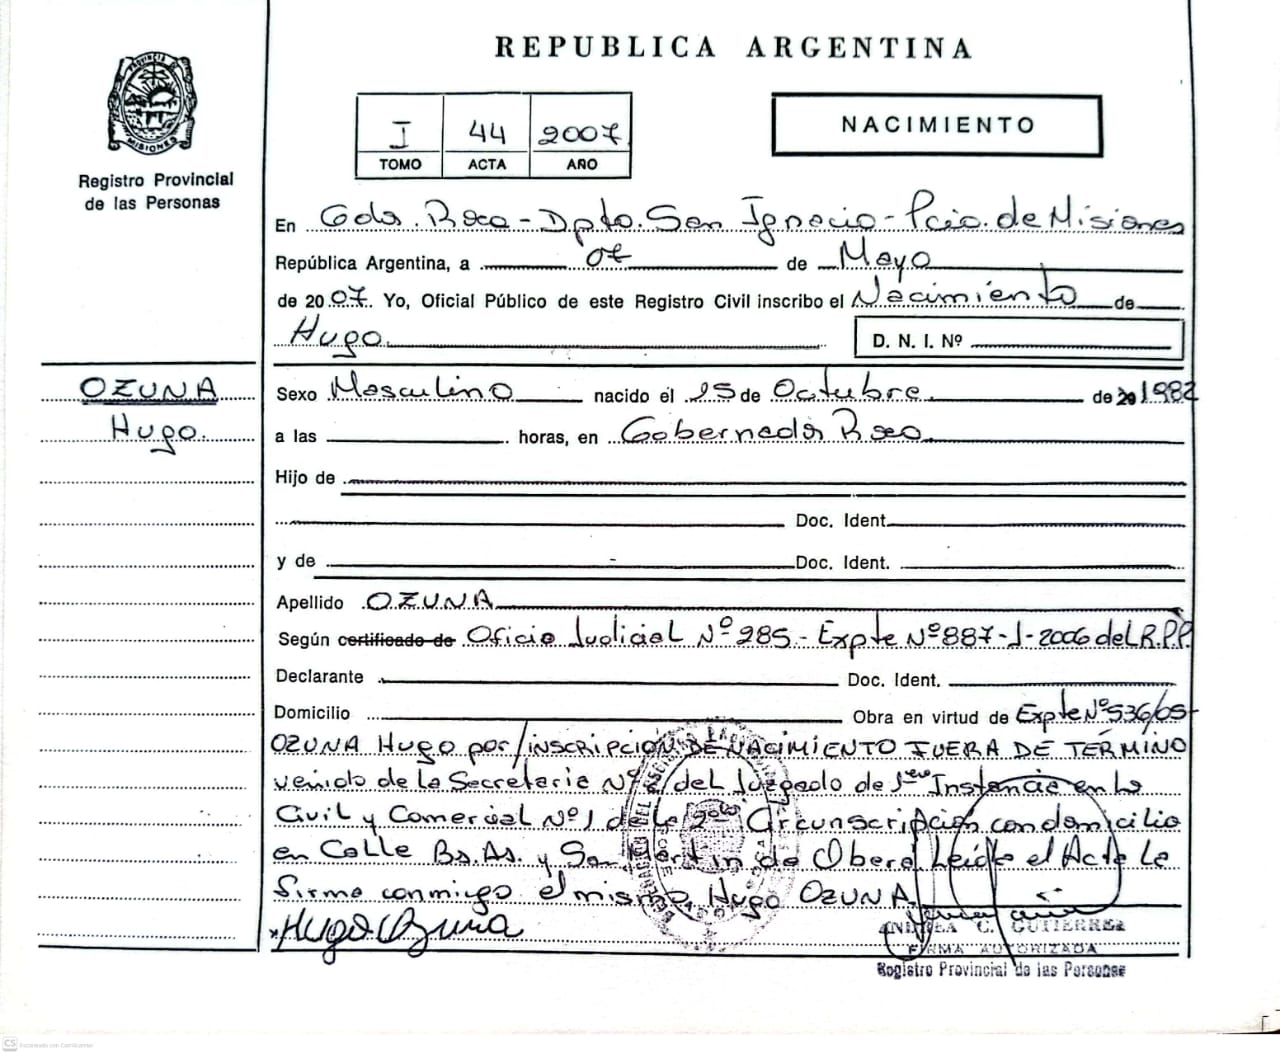 REPUBLICA ARGENTINA
PROVINCIA DE MISIONES
Registro Provincial
de las Personas
I 44 2007
TOMO ACTA AÑO
NACIMIENTO
En Gdor. Roca - Dpto. San Ignacio - Pcia. de Misiones
República Argentina, a 07 de Mayo
de 2007. Yo, Oficial Público de este Registro Civil inscribo el Nacimiento de
Hugo. D. N. I. Nº
OZUNA
Hugo.
Sexo Masculino nacido el 25 de Octubre de 20 1982
a las horas, en Gobernador Roca
Hijo de
Doc. Ident.
y de Doc. Ident.
Apellido OZUNA
Según certificado de Oficio Judicial Nº 285 - Expte Nº 887-J-2006 del R.P.P.
Declarante Doc. Ident.
Domicilio Obra en virtud de Expte Nº 536/05
OZUNA HUGO por/inscripcion DE NACIMIENTO FUERA DE TERMINO
venido de la Secretaria Nº del Juzgado de 1era Instancia en lo
Civil y Comercial Nº 1 de la 2da Circunscripción con domicilio
en Calle Bs. As. y San Martin de Obera. Leida el Acta La
firma conmigo el mismo, Hugo OZUNA
Hugo Ozuna
ANDREA C. GUTIERREZ
FIRMA AUTORIZADA
Registro Provincial de las Personas
CS Escaneado con CamScanner